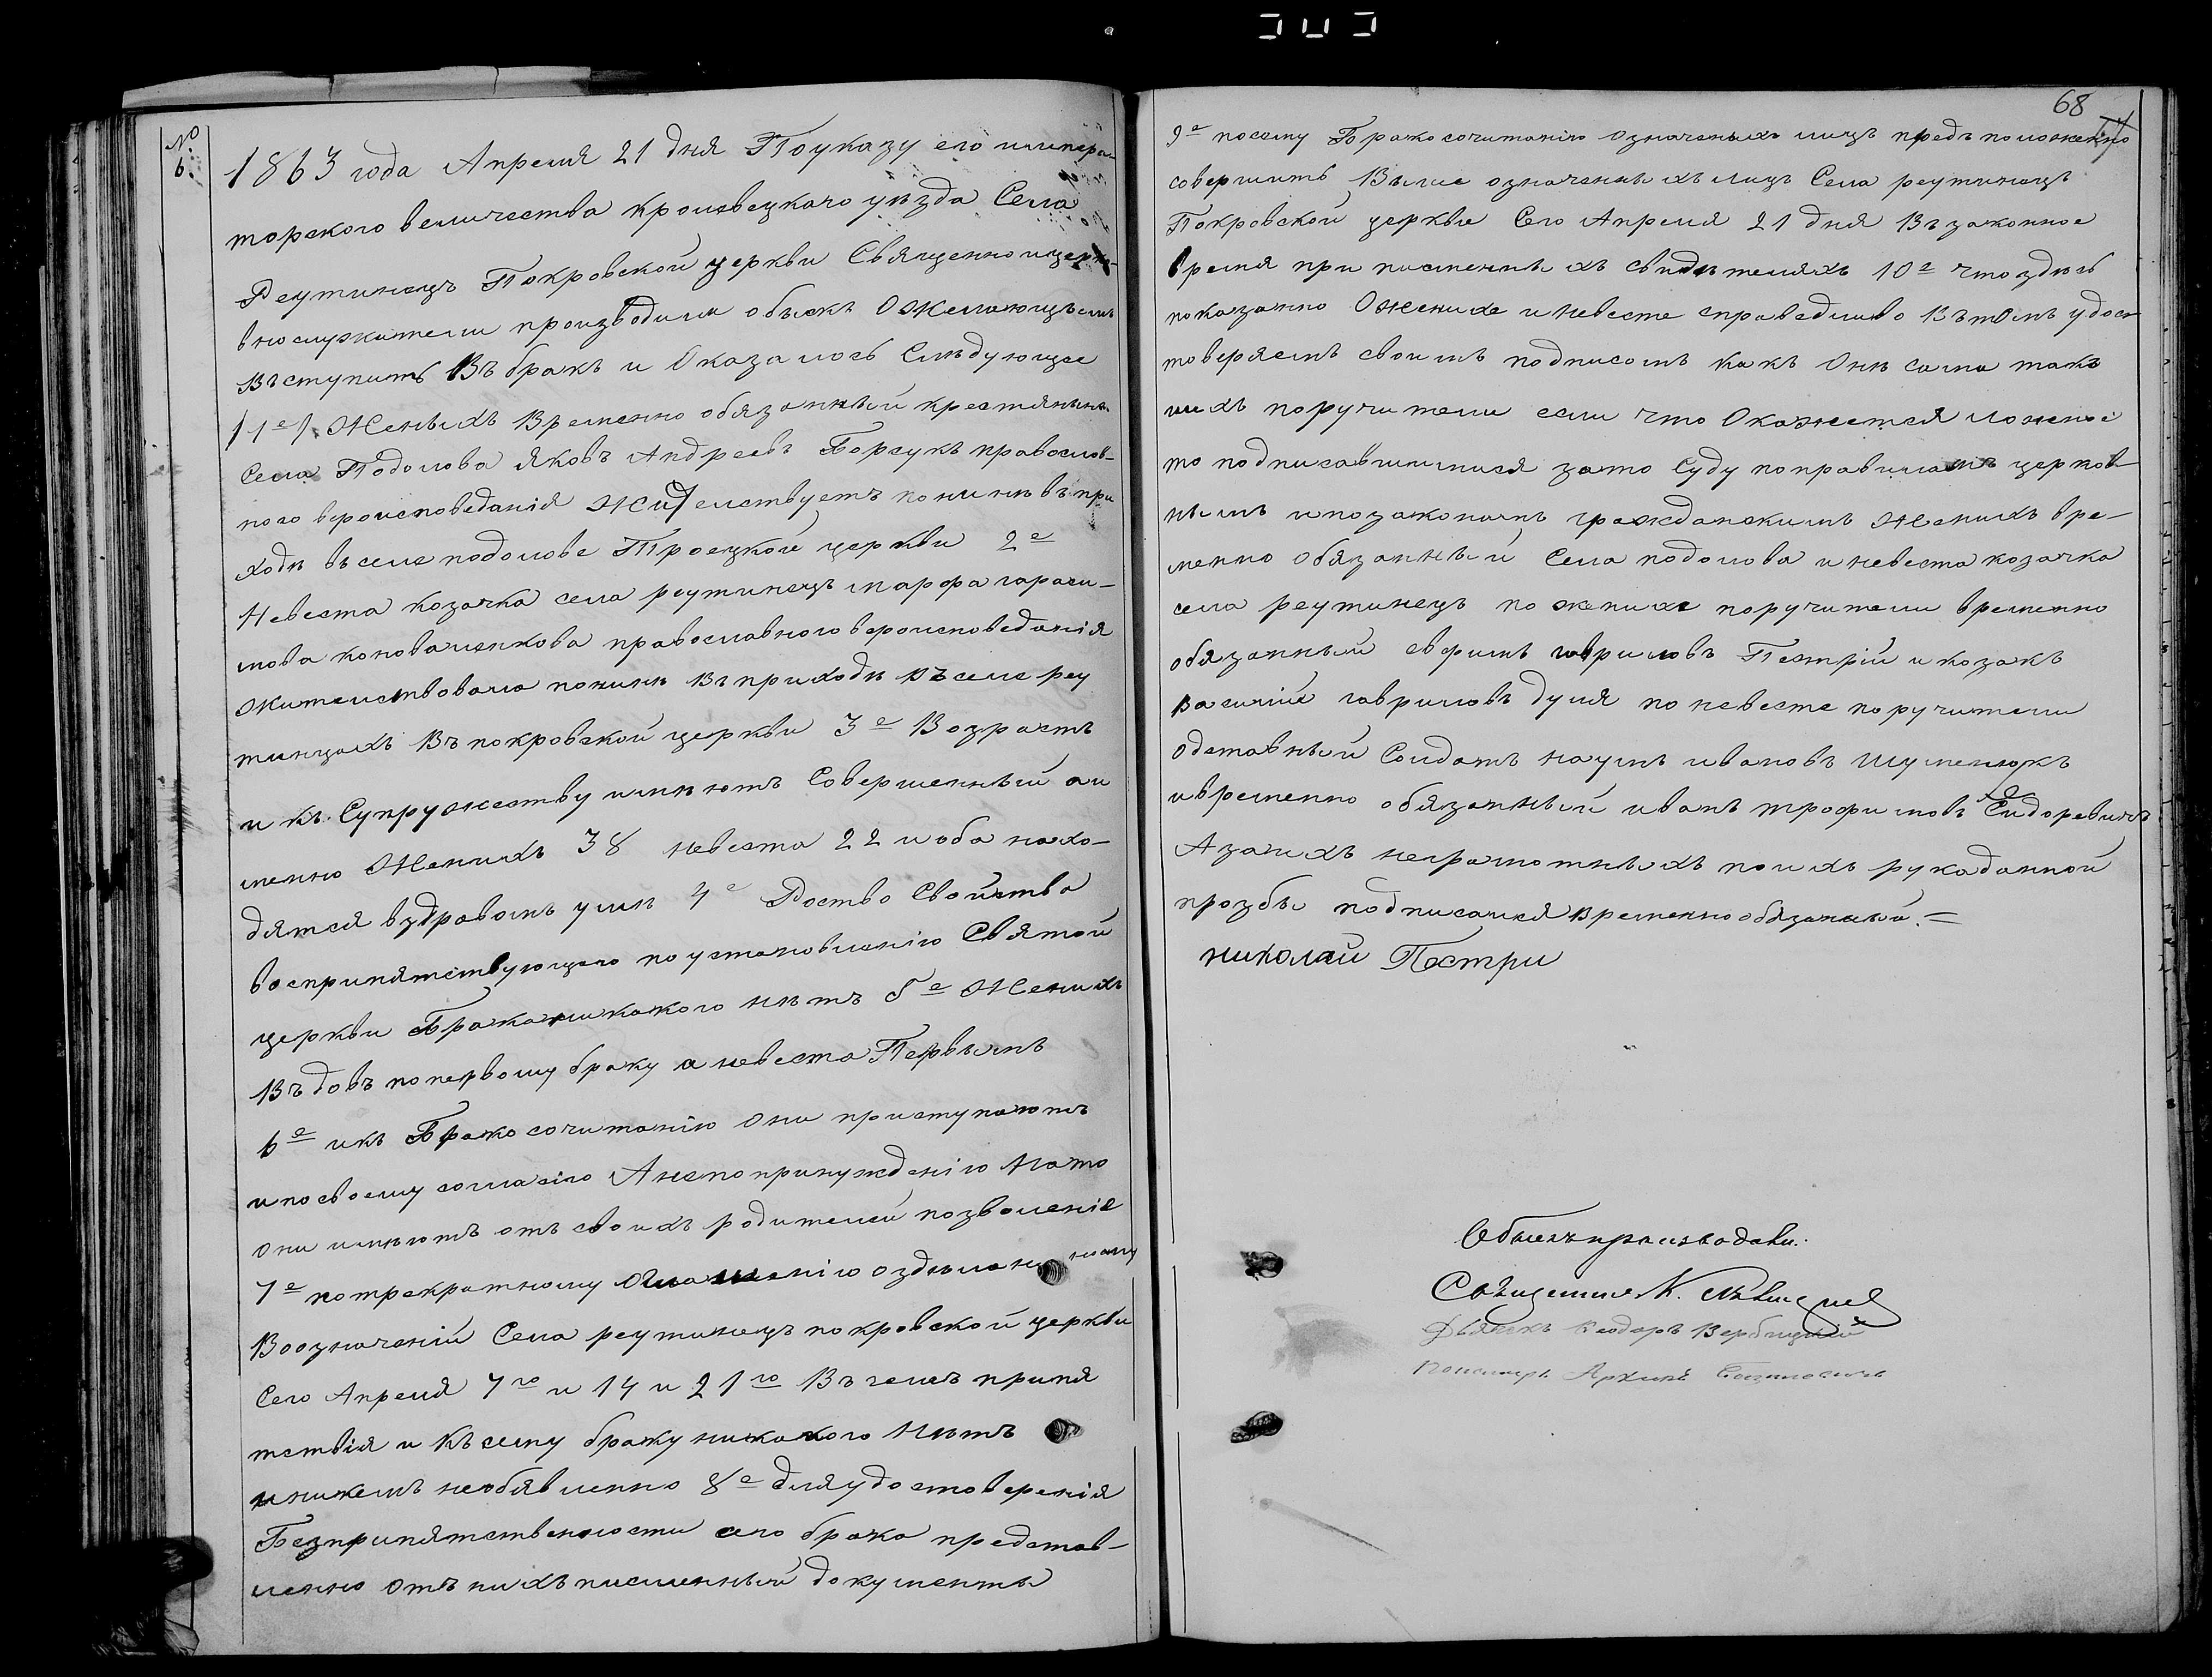 №
6.
1863 года Апреля 21 дня Поуказу его импера-
торского величества кролевецкаго уѣзда Села
Реутинецъ Покровской церкви Священно ицерко-
внослужители производили обыскъ Ожелающемъ
Въступить Въ бракъ и Оказалось Слѣдующее
/1е/ Женыхъ Временно обязанный крестянинъ
Села Подолова яковъ Андреевъ Борсукъ православ-
ного вероисповеданія Жительствуетъ понинѣ въ при
ходѣ въ селе подолове Троецкой церкви 2е
Невеста козачка села реутинецъ марфа гараси-
мова коноваленкова православного вероисповеданія
жительствовала понинѣ Въ приходѣ Въ селе реу
тинцахъ Въ покровской церкви 3е Возрастъ
и къ Супружеству имѣютъ Совершенный аи
менно Женихъ 38 невеста 22 и оба нахо-
дятся вздравомъ умѣ 4е Родство Свойства
воспрпятствующаго по установленію Святой
церкви Брака никакого нѣтъ 5е Женихъ
Въдовъ по первому браку а невеста Первымъ
6е икъ Бракосочитанію Они приступаютъ
и по своему согласію А не по принужденію На то
они имѣютъ отъ своихъ родителей позволеніе
7е по трекратному оздѣланному
Воозначеній Села реутинецъ покровской церкви
Сего Апреля 7го и 14 и 21го Въ чемъ припя
тствія и Къ сему браку никакого Нѣтъ
и никемъ необявленно 8е для удостоверенія
Безприпятственности сего брака представ-
ленно Отъ нихъ писменный документы
68
9е посему Бракосочитанію Означеныхъ лицъ предъположенно
совершить Выше означеныхъ лицъ Села реутинецъ
Покровской церкве Сего Апреля 21 дня Въ законное
время при писменныхъ свидѣтеляхъ 10е что здѣсь
показанно Ожених и невесте справедливо Въ томъ удос
товеряемъ своимъ подписомъ какъ Они сами такъ
ихъ поручители если что Окажется ложное
то подписавшимися зато Суду по правиламъ церков
нымъ и позаконамъ гражданскимъ Женихъ вре-
менно обязанный Села подолова и невеста козачка
села реутинецъ по женихе поручители временно
обязанный ефимъ гавриловъ Пестрій и козакъ
Василій гавриловъ дуля по невесте поручители
одставный Солдатъ наумъ ивановъ Шуменюкъ
и временно обязанный иванъ трофимовъ Сидоревичъ
А за ихъ неграмотныхъ по ихъ рукаданной
прозбы подписался Временно обязаный. =
николай Пестри
Обыскъ производили:
Священникъ К.
Дьячекъ Феодоръ Вербицкій
Пономарь Архипъ